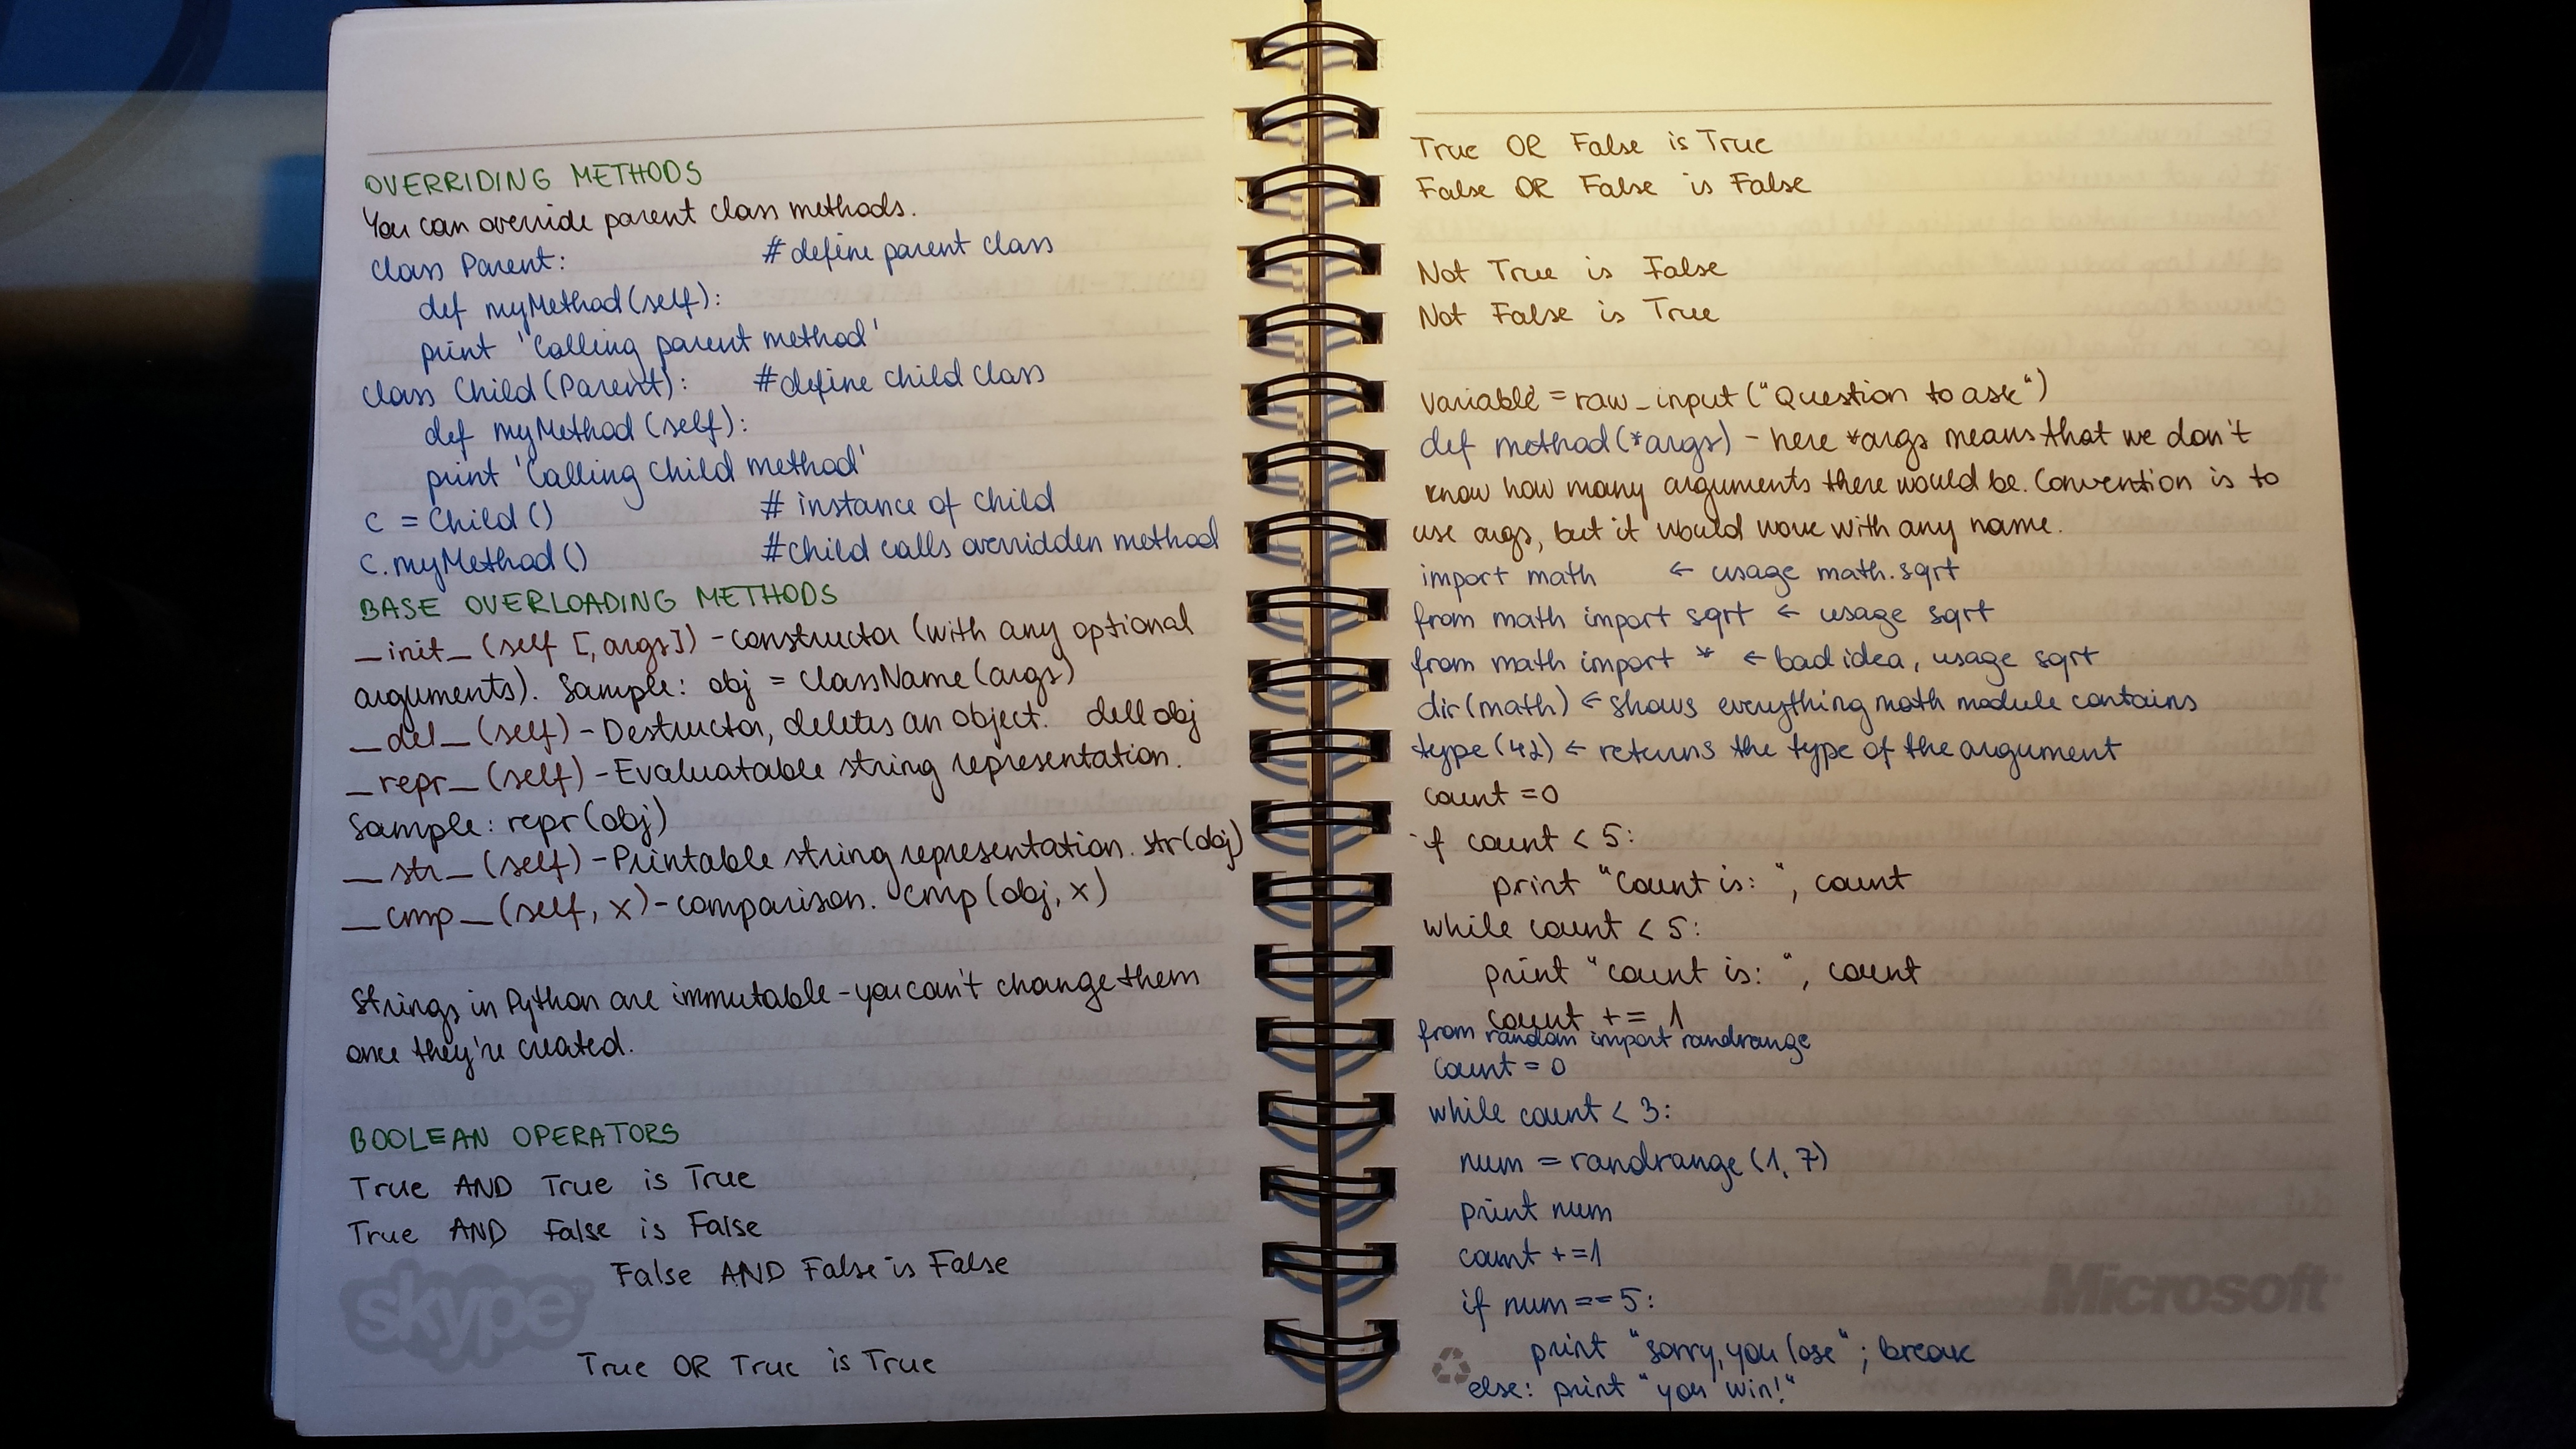 OVERRIDING METHODS
You can override parent class methods.
class Parent: # define parent class
def myMethod(self):
print 'Calling parent method'
class Child(Parent): #define child class
def myMethod(self):
print 'Calling child method'
c = Child() # instance of child
c.myMethod() #child calls overridden method
BASE OVERLOADING METHODS
_init_(self [,args]) - constructor (with any optional
arguments). Sample: obj = className(args)
__del_(self) - Destructor, deletes an object. dell obj
_repr_(self) - Evaluatable string representation.
Sample: repr(obj)
__str_(self) - Printable string representation. str(obj)
__cmp_(self, x) - comparison. cmp(obj, x)
Strings in Python are immutable - you can't change them
once they're created.
BOOLEAN OPERATORS
True AND True is True
True AND False is False
False AND False is False
skype™
True OR True is True
True OR False is True
False OR False is False
Not True is False
Not False is True
variable = raw_input("Question to ask")
def method(*args) - here *args means that we don't
know how many arguments there would be. Convention is to
use args, but it would work with any name.
import math ← usage math.sqrt
from math import sqrt ← usage sqrt
from math import * ← bad idea, usage sqrt
dir(math) ← shows everything math module contains
type(42) ← returns the type of the argument
count = 0
if count < 5:
print "Count is: ", count
while count < 5:
print "count is: ", count
count += 1
from random import randrange
count = 0
while count < 3:
num = randrange(1, 7)
print num
count += 1
if num == 5:
print "sorry, you lose"; break
else: print "you win!"
Microsoft